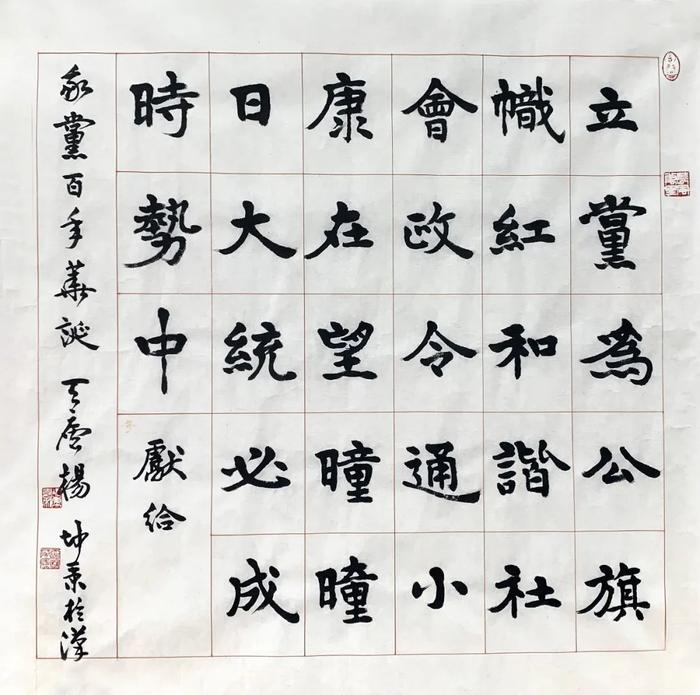 立黨為公旗
幟紅和諧社
會政令通小
康在望曈曈
日大統必成
時勢中獻給
我黨百年華誕 天應楊坤業於漢